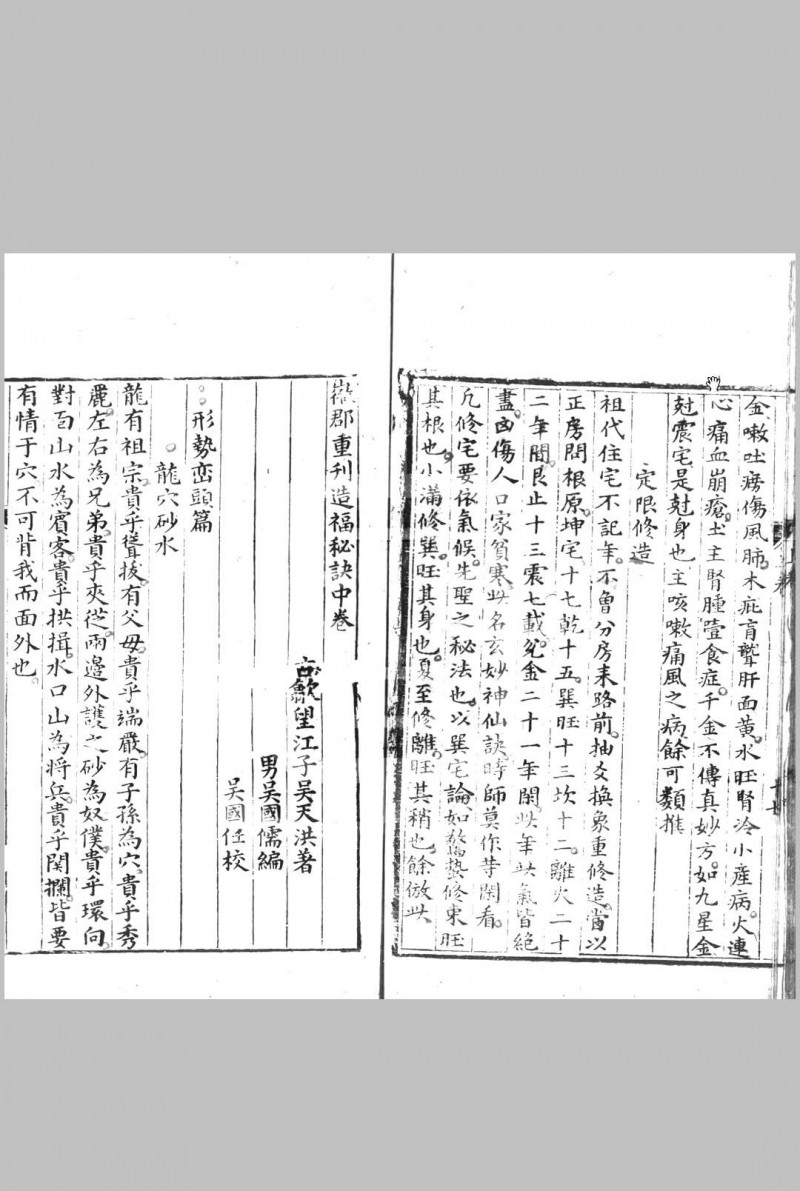 金嗽吐癆傷風肺木疵盲聾肝面黃水旺腎冷小産病火連
心痛血崩瘡土主腎腫噎食症千金不傳真妙方如九星金
尅震宅是尅身也主咳嗽痛風之病餘可類推
定限修造
祖代住宅不記年不曾分房來路前抽爻換象重修造當以
正房問根原坤宅十七乾十五巽旺十三坎十二離火二十
二年間艮止十三震七載兌金二十一年閑此年此氣皆絕
盡凶傷人口家貧寒此名玄妙神仙訣時師莫作芋閑看
凢修宅要依氣候先聖之秘法也以巽宅論如驚蟄修東旺
其根也小滿修巽旺其身也夏至修離旺其稍也餘倣此
徽郡重刊造福秘訣中卷
古歙望江子吳天洪著
男吳國儒編
吳國任校
形勢巒頭篇
龍穴砂水
龍有祖宗貴乎聳拔有父母貴乎端嚴有子孫為穴貴乎秀
麗左右為兄弟貴乎夾從兩邊外護之砂為奴僕貴乎環向
對面山水為賓客貴乎拱揖水口山為将兵貴乎関攔皆要
有情于穴不可背我而面外也